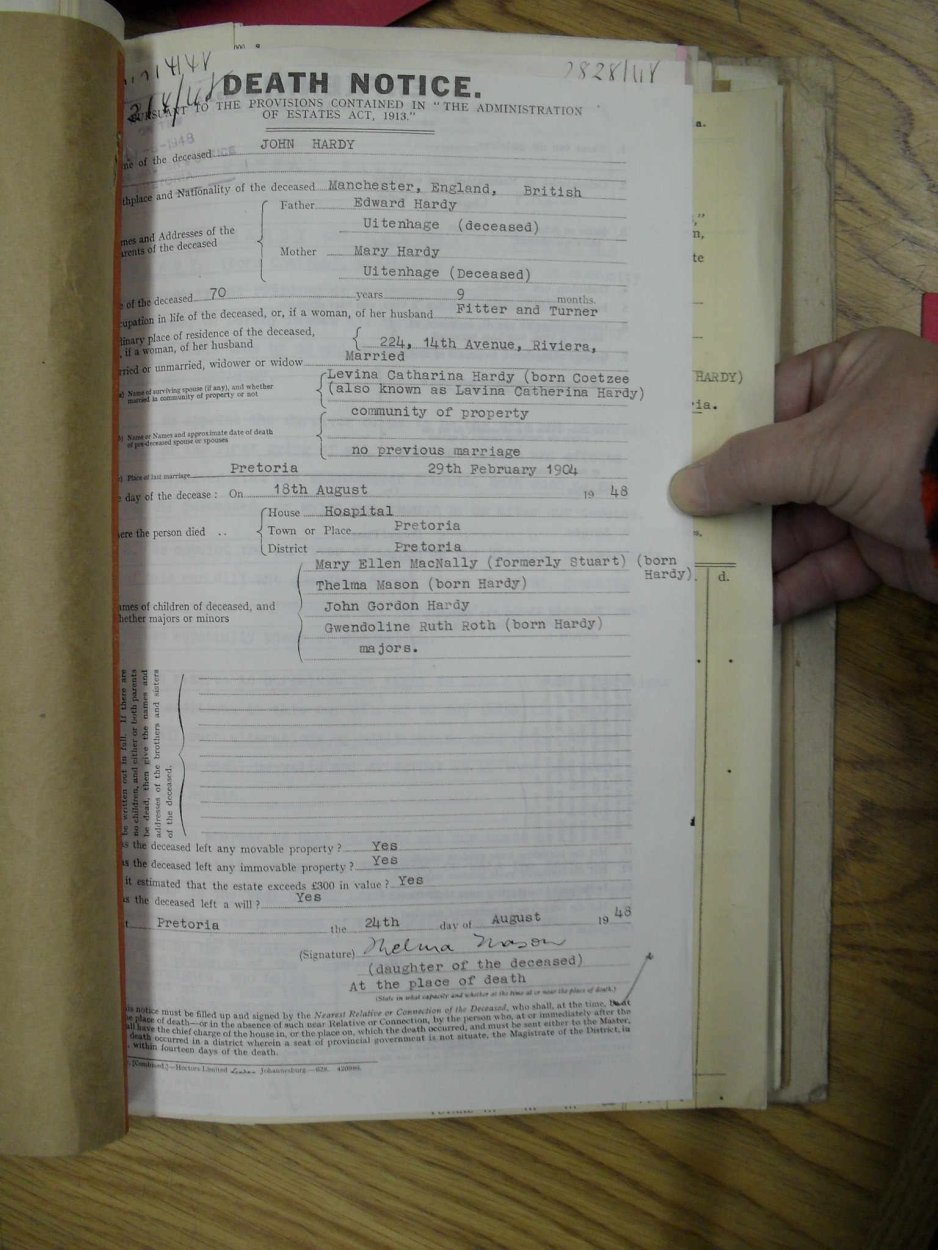 2828/48
DEATH NOTICE.
TO THE PROVISIONS CONTAINED IN "THE ADMINISTRATION
OF ESTATES ACT, 1913."
of the deceased JOHN HARDY
and Nationality of the deceased Manchester, England, British
and Addresses of the
of the deceased
Father Edward Hardy
Uitenhage (deceased)
Mother Mary Hardy
Uitenhage (Deceased)
of the deceased 70 years 9 months.
in life of the deceased, or, if a woman, of her husband Fitter and Turner
place of residence of the deceased,
if a woman, of her husband
224, 14th Avenue, Riviera,
or unmarried, widower or widow Married
Name of surviving spouse (if any), and whether
married in community of property or not
Levina Catharina Hardy (born Coetzee
(also known as Lavina Catherina Hardy)
community of property
Name or Names and approximate date of death
of pre-deceased spouse or spouses
no previous marriage
Place of last marriage Pretoria 29th February 1904
day of the decease: On 18th August 19 48
the person died ..
House Hospital
Town or Place Pretoria
District Pretoria
of children of deceased, and
majors or minors
Mary Ellen MacNally (formerly Stuart) (born
Hardy).
Thelma Mason (born Hardy)
John Gordon Hardy
Gwendoline Ruth Roth (born Hardy)
majors.
be written out in full. If there are
no children, and either or both parents
be dead, then give the names and
addresses of the brothers and sisters
of the deceased.
the deceased left any movable property? Yes
the deceased left any immovable property? Yes
it estimated that the estate exceeds £300 in value? Yes
the deceased left a will? Yes
Pretoria the 24th day of August 19 48
(Signature) Thelma Mason
(daughter of the deceased)
At the place of death
(State in what capacity and whether at the time at or near the place of death.)
notice must be filled up and signed by the Nearest Relative or Connection of the Deceased, who shall, at the time, be at
place of death—or in the absence of such near Relative or Connection, by the person who, at or immediately after the
have the chief charge of the house in, or the place on, which the death occurred, and must be sent either to the Master,
death occurred in a district wherein a seat of provincial government is not situate, the Magistrate of the District, in
within fourteen days of the death.
(Combined.)—Hortors Limited Johannesburg
HARDY)
ia.
d.